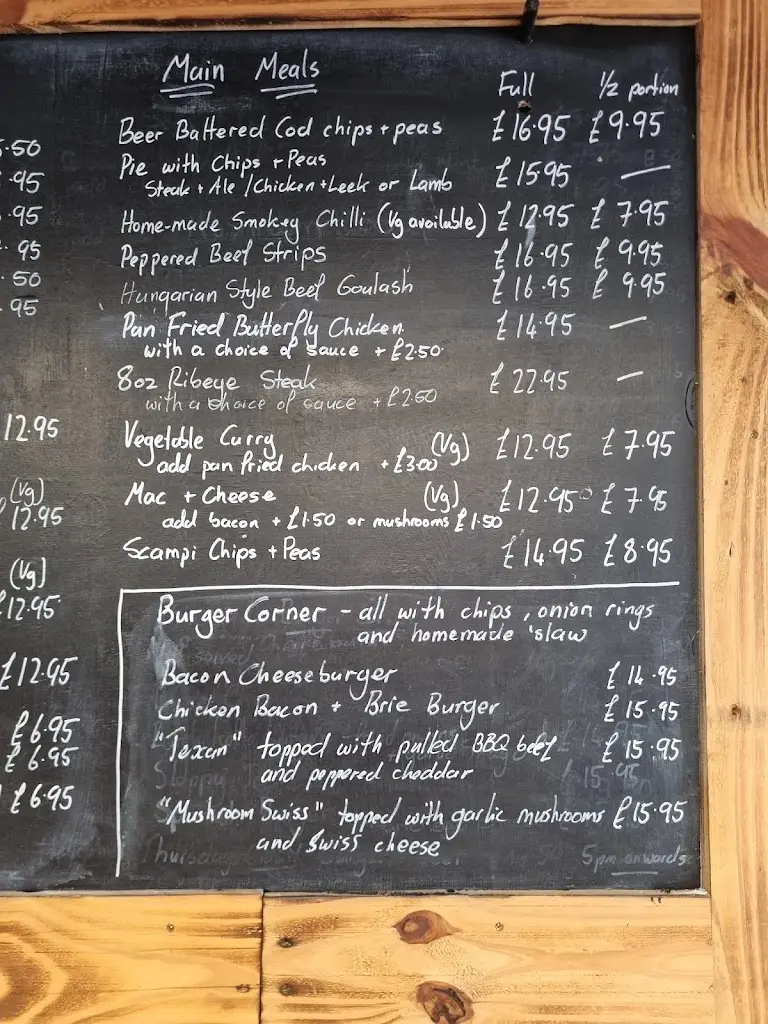 Main Meals
Full 1/2 portion
Beer Battered Cod chips + peas £16.95 £9.95
Pie with Chips + Peas
Steak + Ale / Chicken + Leek or Lamb £15.95 —
Home-made Smokey Chilli (Vg available) £12.95 £7.95
Peppered Beef Strips £16.95 £9.95
Hungarian Style Beef Goulash £16.95 £9.95
Pan Fried Butterfly Chicken £14.95 —
with a choice of sauce + £2.50
8oz Ribeye Steak £22.95 —
with a choice of sauce + £2.50
Vegetable Curry (Vg) £12.95 £7.95
add pan fried chicken + £3.00
Mac + Cheese (Vg) £12.95 £7.95
add bacon + £1.50 or mushrooms £1.50
Scampi Chips + Peas £14.95 £8.95
Burger Corner - all with chips, onion rings
and homemade 'slaw
Bacon Cheeseburger £14.95
Chicken Bacon + Brie Burger £15.95
"Texan" topped with pulled BBQ beef £15.95
and peppered cheddar
"Mushroom Swiss" topped with garlic mushrooms £15.95
and Swiss cheese
Thursday
5pm onwards
.50
.95
.95
.95
.50
.95
12.95
(Vg)
12.95
(Vg)
£12.95
£12.95
£6.95
£6.95
£6.95